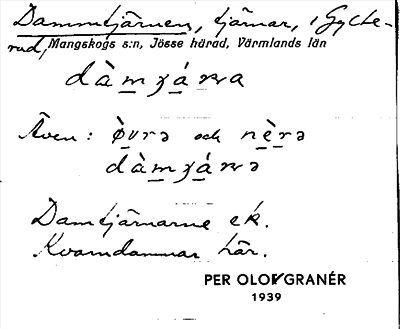 Dammtjärnen, tjärnar, i Gylte-
rud, Mangskogs s:n, Jösse härad, Värmlands län
dàmʒána
Även: òvrə och nèrə
dàmʒánə
Damtjärnarne ek.
Kvarndammar här.
PER OLOF GRANÉR
1939